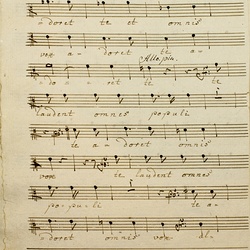 -doret te et omnis
vox a- doret te a-
Allo piu.
do- ret te
laudent omnes populi
te a- doret omnis
voxe te laudent omnes
po-pu-li te a-
-doret omnis vox al-